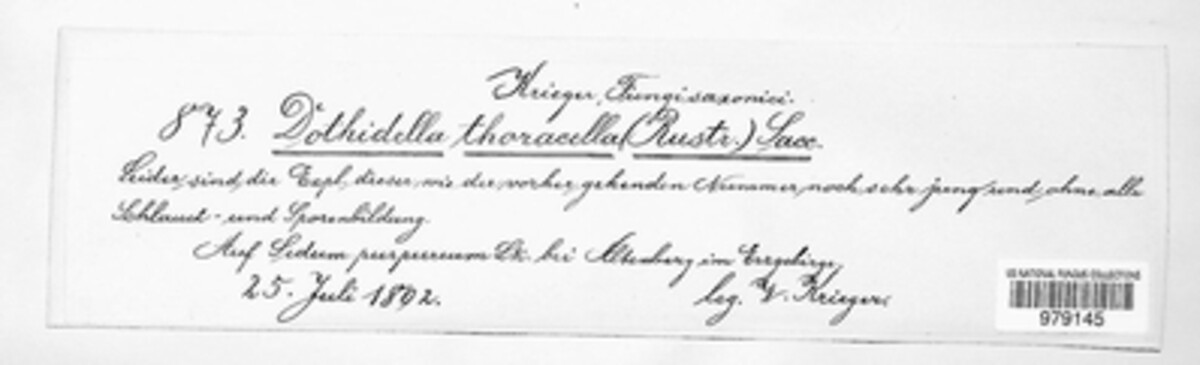 Krieger, Fungi saxonici.
873. Dothidella thoracella (Rustr.) Sacc.
Leider sind die Expl. dieser, wie der vorher gehenden Nummer, noch sehr jung und ohne alle
Schlauch- und Sporenbildung.
Auf Sedum purpureum Lk. bei Altenberg im Erzgebirge,
25. Juli 1892. leg. W. Krieger.
US NATIONAL FUNGUS COLLECTIONS
979145